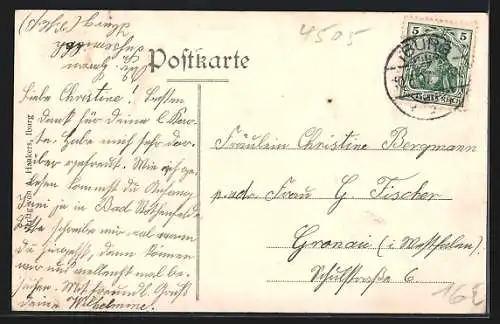 4505
Postkarte
5 5
IBURG
DEUTSCHES REICH
Liebe Christine! Besten
Dank für Deine l. Kar-
te. Habe mich sehr dar-
über gefreut. Wie ich ge-
lesen kommst du Anfang
Juni ja in Bad Rothenfelde
Bitte schreibe mir mal wann
du hingehst, dann können
wir uns vielleicht mal be-
suchen. Mit freundl. Gruß
deine Wilhelmine.
Haakers, Iburg
Fräulein Christine Bergmann
p. adr. Frau G. Fischer
Gronau (i/Westfalen)
Schulstraße 6
16E